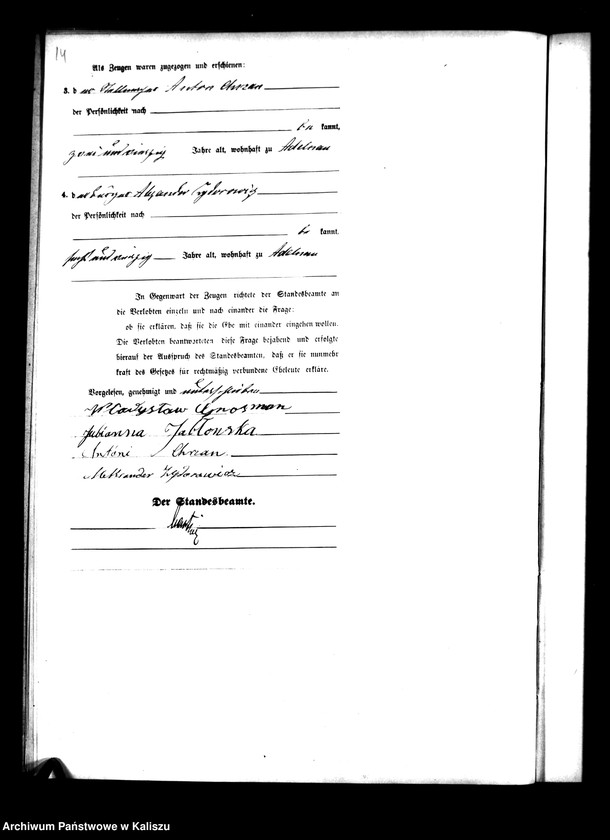 14
Als Zeugen waren zugezogen und erschienen:
3. der Anton Chrzan
der Persönlichkeit nach
be kannt,
zwei und vierzig Jahre alt, wohnhaft zu Adelnau
4. der Alexander
der Persönlichkeit nach
be kannt.
sechs und Jahre alt, wohnhaft zu Adelnau
In Gegenwart der Zeugen richtete der Standesbeamte an
die Verlobten einzeln und nach einander die Frage:
ob sie erklären, daß sie die Ehe mit einander eingehen wollen.
Die Verlobten beantworteten diese Frage bejahend und erfolgte
hierauf der Ausspruch des Standesbeamten, daß er sie nunmehr
kraft des Gesetzes für rechtmäßig verbundene Eheleute erkläre.
Vorgelesen, genehmigt und unterschrieben
Władysław
Fabianna Jabłonska
Antoni Chrzan
Aleksander
Der Standesbeamte.
Archiwum Państwowe w Kaliszu